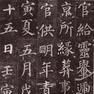 官給靈轝
京所緣葬事
官供明年
寅夏五月
十五日壬寅